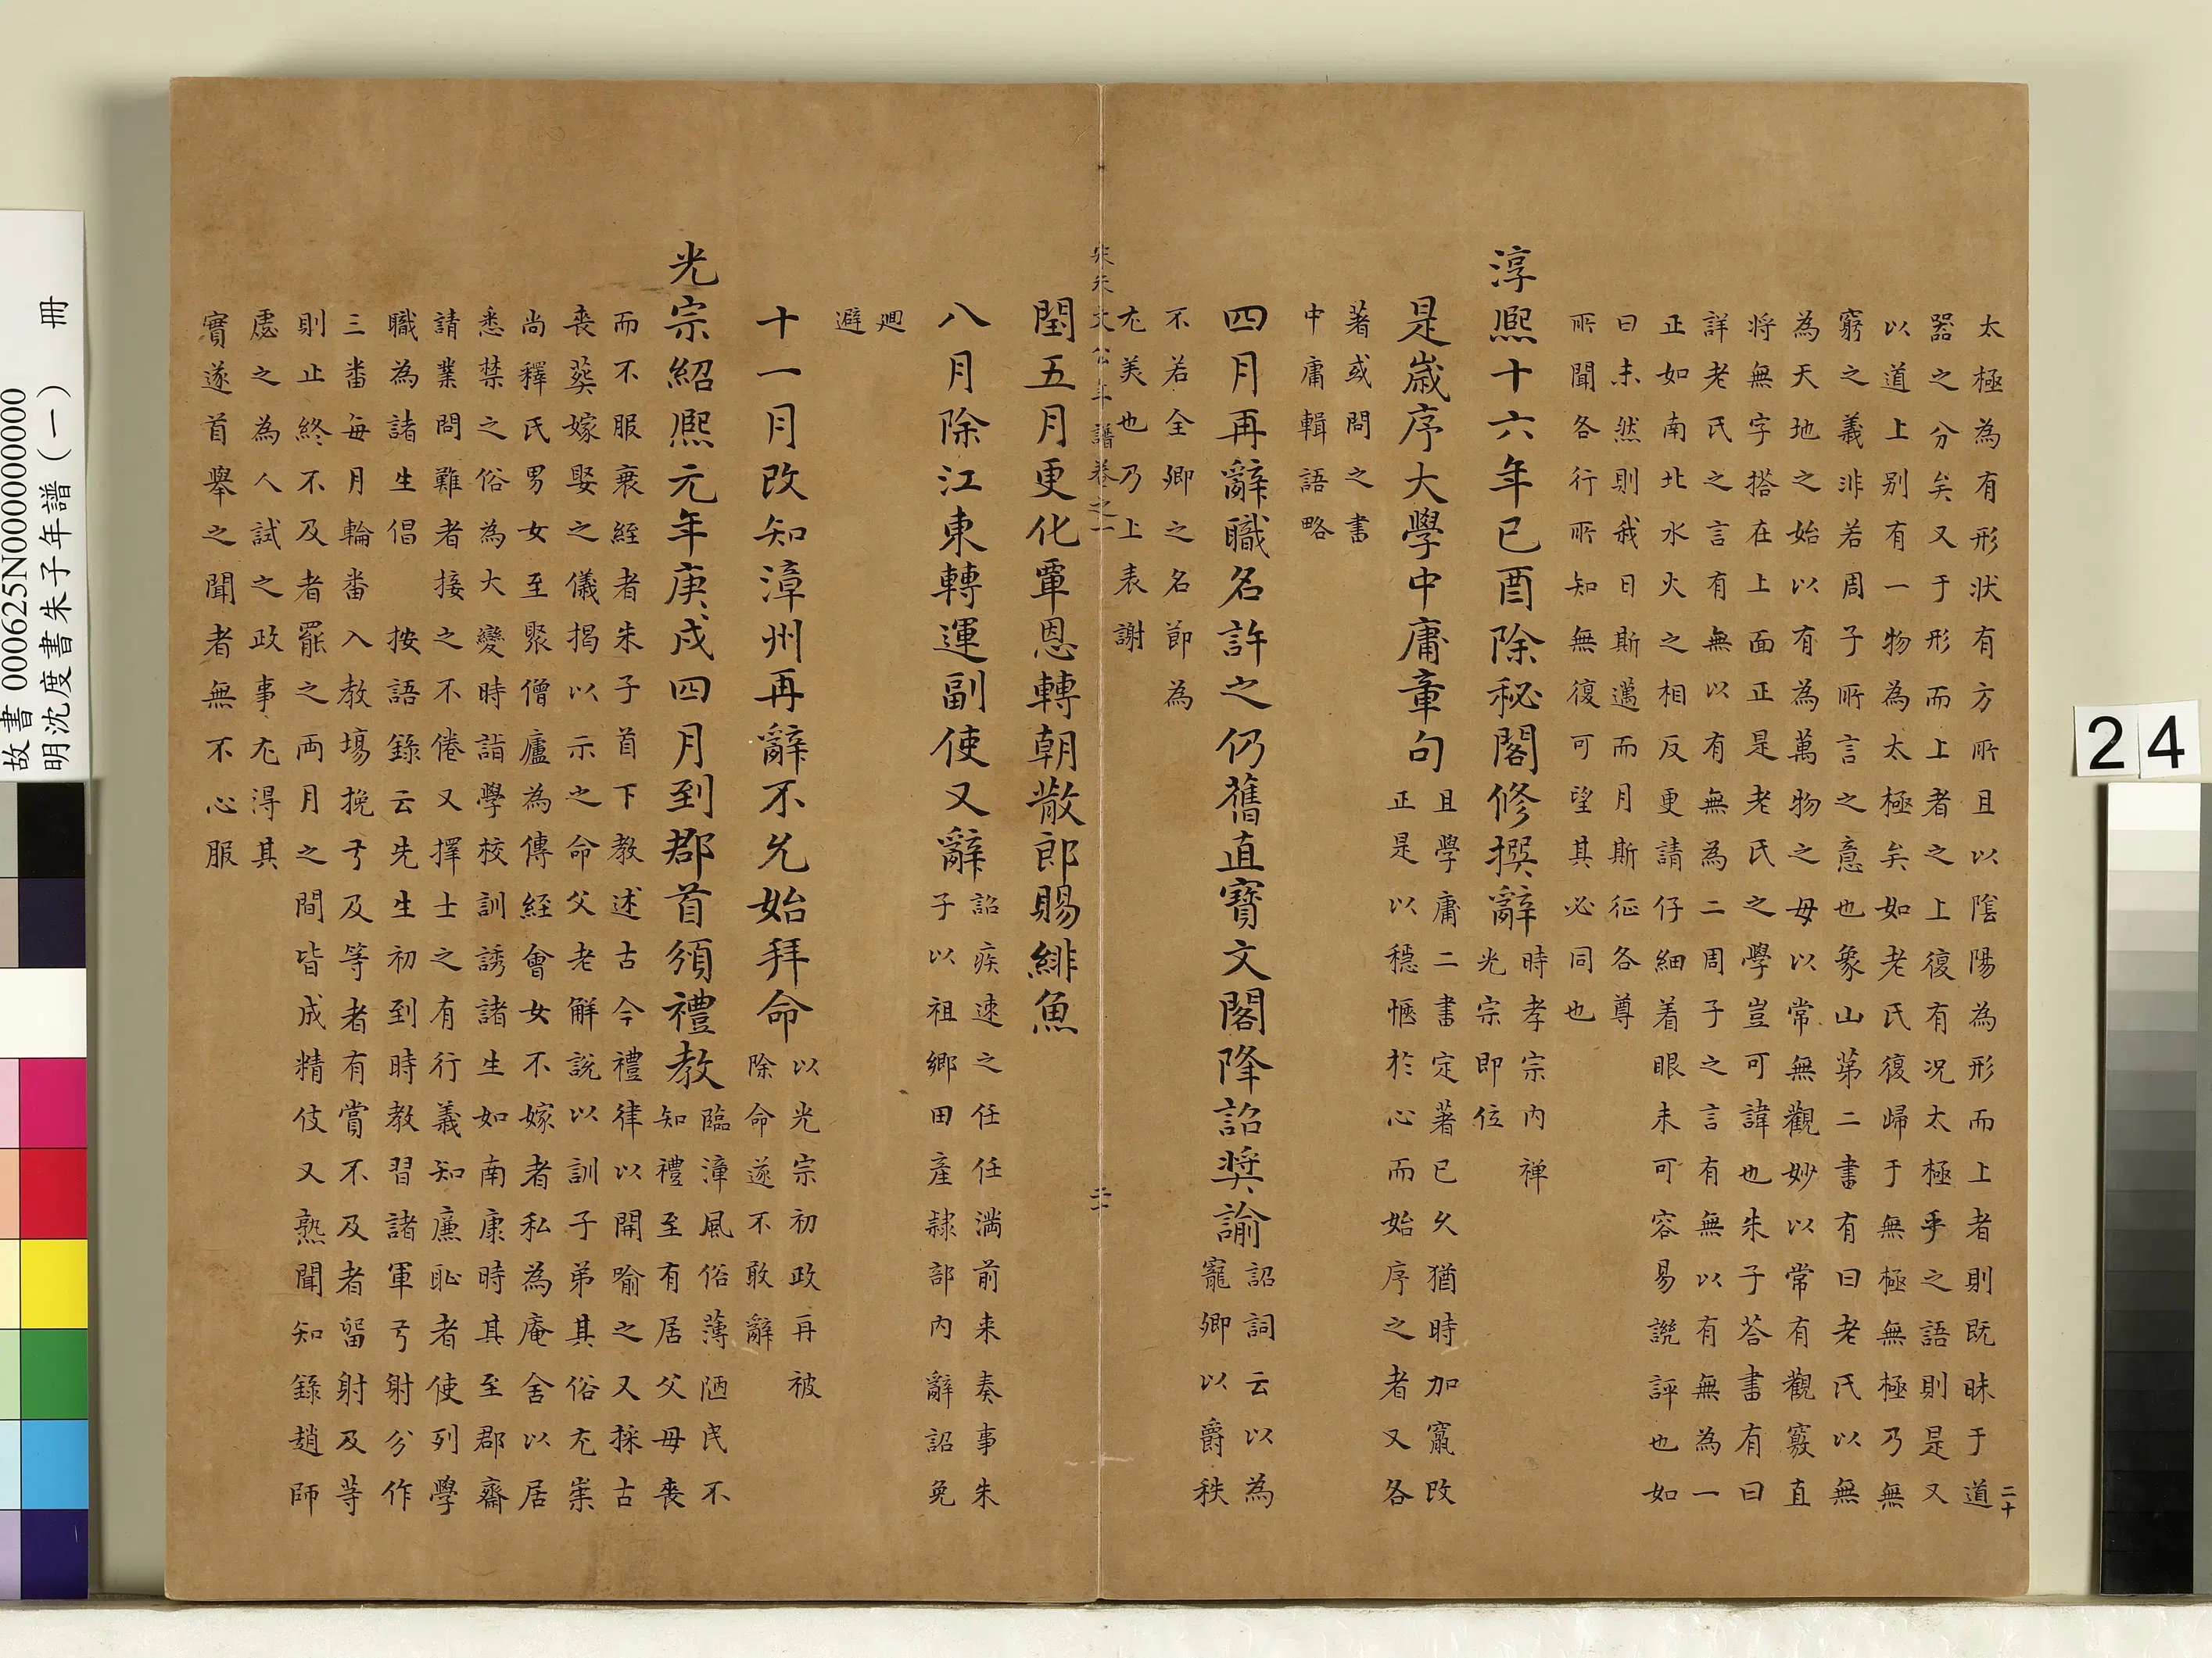 太極為有形狀有方所且以陰陽為形而上者則既昧于道
器之分矣又于形而上者之上復有况太極乎之語則是又
以道上别有一物為太極矣如老氏復歸于無極無極乃無
窮之義非若周子所言之意也象山第二書有曰老氏以無
為天地之始以有為萬物之母以常無觀妙以常有觀竅直
将無字搭在上面正是老氏之學豈可諱也朱子荅書有曰
詳老氏之言有無以有無為二周子之言有無以有無為一
正如南北水火之相反更請仔細着眼未可容易譏評也如
曰未然則我日斯邁而月斯征各尊
所聞各行所知無復可望其必同也
淳熙十六年已酉除秘閣修撰辭
時孝宗内禅
光宗即位
是歲序大學中庸章句
且學庸二書定著已久猶時加竄改
正是以穩愜於心而始序之者又各
著或問之書
中庸輯語略
四月再辭職名許之仍舊直寶文閣降詔奬諭
詔詞云以為
寵卿以爵秩
不若全卿之名節為
尤美也乃上表謝
宋朱文公年譜卷之一
二一
閏五月更化覃恩轉朝散郎賜緋魚
八月除江東轉運副使又辭
詔疾速之任任满前来奏事朱
子以祖鄉田產隷部内辭詔免
廻
避
十一月改知漳州再辭不允始拜命
以光宗初政再被
除命遂不敢辭
光宗紹熙元年庚戍四月到郡首須禮教
臨漳風俗薄陋民不
知禮至有居父母喪
而不服衰絰者朱子首下教述古今禮律以開喻之又採古
喪葬嫁娶之儀揭以示之命父老解説以訓子弟其俗尤崇
尚釋氏男女至聚僧廬為傳經會女不嫁者私為庵舍以居
悉禁之俗為大變時詣學校訓誘諸生如南康時其至郡齋
請業問難者接之不倦又擇士之有行義知廉恥者使列學
職為諸生倡 按語錄云先生初到時教習諸軍弓射分作
三畨每月輪畨入教場挽弓及等者有賞不及者留射及等
則止終不及者罷之両月之間皆成精伎又熟聞知錄趙師
處之為人試之政事尤得其
實遂首舉之聞者無不心服
二十
24
故書 000625N000000000
明沈度書朱子年譜(一) 冊